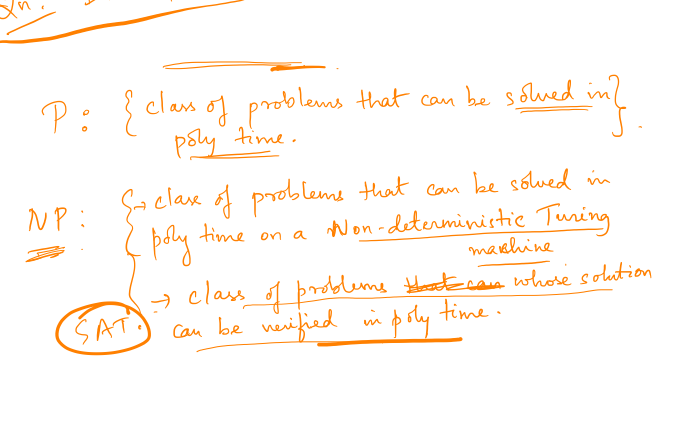 Qn.
P: { class of problems that can be solved in }.
poly time.
NP: { → class of problems that can be solved in
poly time on a Non-deterministic Turing
machine
→ class of problems that can whose solution
SAT. can be verified in poly time.